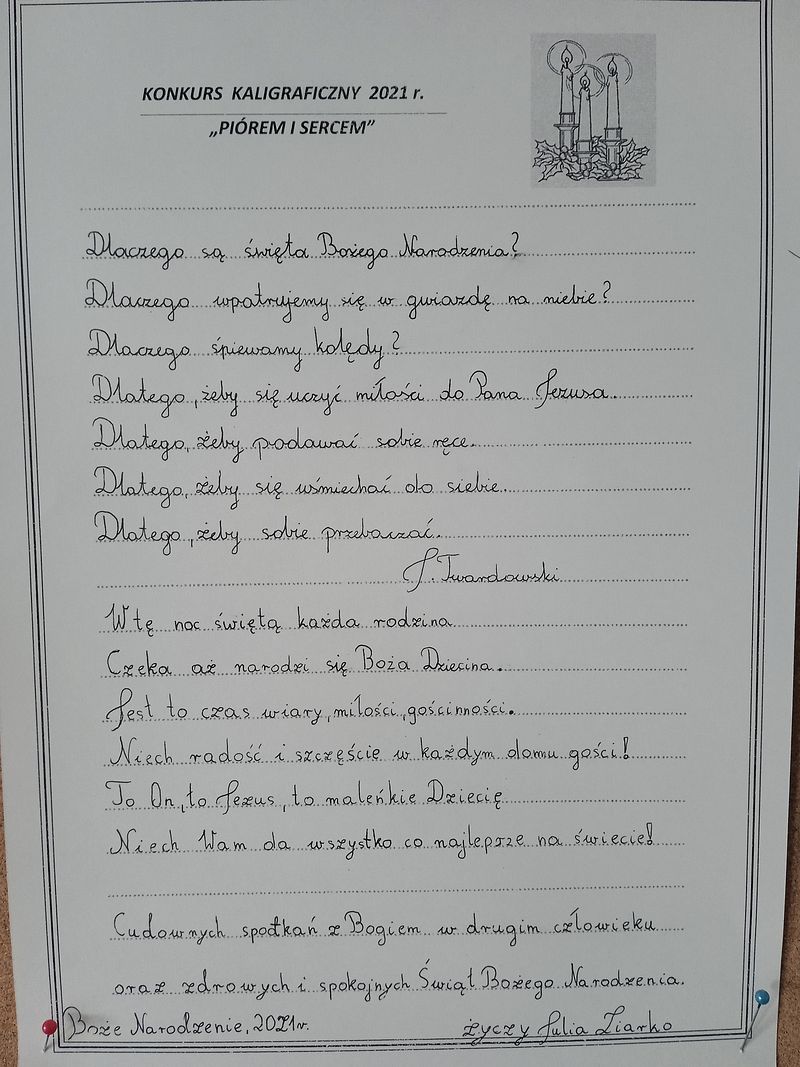 KONKURS KALIGRAFICZNY 2021 r.
„PIÓREM I SERCEM”
Dlaczego są święta Bożego Narodzenia?
Dlaczego wpatrujemy się w gwiazdę na niebie?
Dlaczego śpiewamy kolędy?
Dlatego, żeby się uczyć miłości do Pana Jezusa.
Dlatego, żeby podawać sobie ręce.
Dlatego, żeby się uśmiechać do siebie.
Dlatego, żeby sobie przebaczać.
J. Twardowski
W tę noc świętą każda rodzina
Czeka aż narodzi się Boża Dziecina.
Jest to czas wiary, miłości, gościnności.
Niech radość i szczęście w każdym domu gości!
To On, to Jezus, to maleńkie Dziecię
Niech Wam da wszystko co najleprze na świecie!
Cudownych spotkań z Bogiem w drugim człowieku
oraz zdrowych i spokojnych Świąt Bożego Narodzenia.
Boże Narodzenie, 2021r. życzy Julia Ziarko